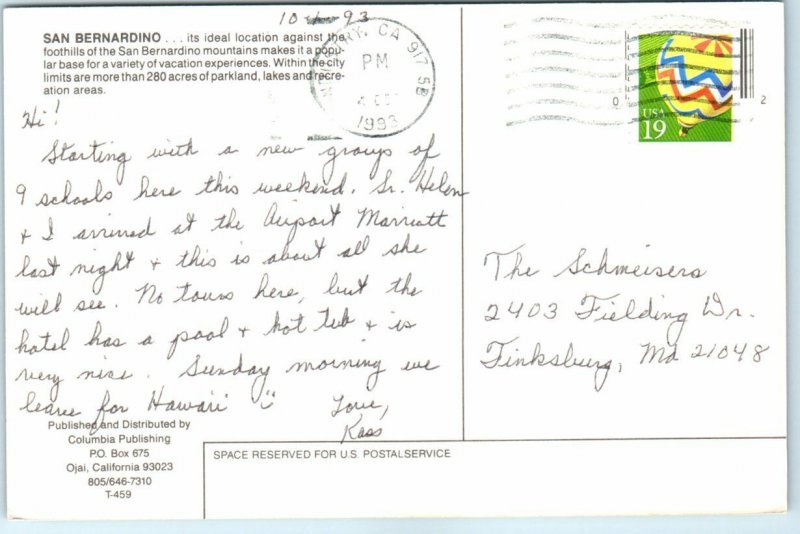 10-1-93
SAN BERNARDINO . . . its ideal location against the
foothills of the San Bernardino mountains makes it a popu-
lar base for a variety of vacation experiences. Within the city
limits are more than 280 acres of parkland, lakes and recre-
ation areas.
CA 917 58
PM
1993
USA
19
0
2
Hi!
Starting with a new group of
9 schools here this weekend. Sr. Helen
+ I arrived at the Airport Marriott
last night + this is about all she
will see. No tours here, but the
hotel has a pool + hot tub + is
very nice. Sunday morning we
leave for Hawaii
Love,
Kass
The Schmeisers
2403 Fielding Dr.
Finksburg, Md 21048
Published and Distributed by
Columbia Publishing
P.O. Box 675
Ojai, California 93023
805/646-7310
T-459
SPACE RESERVED FOR U.S. POSTALSERVICE